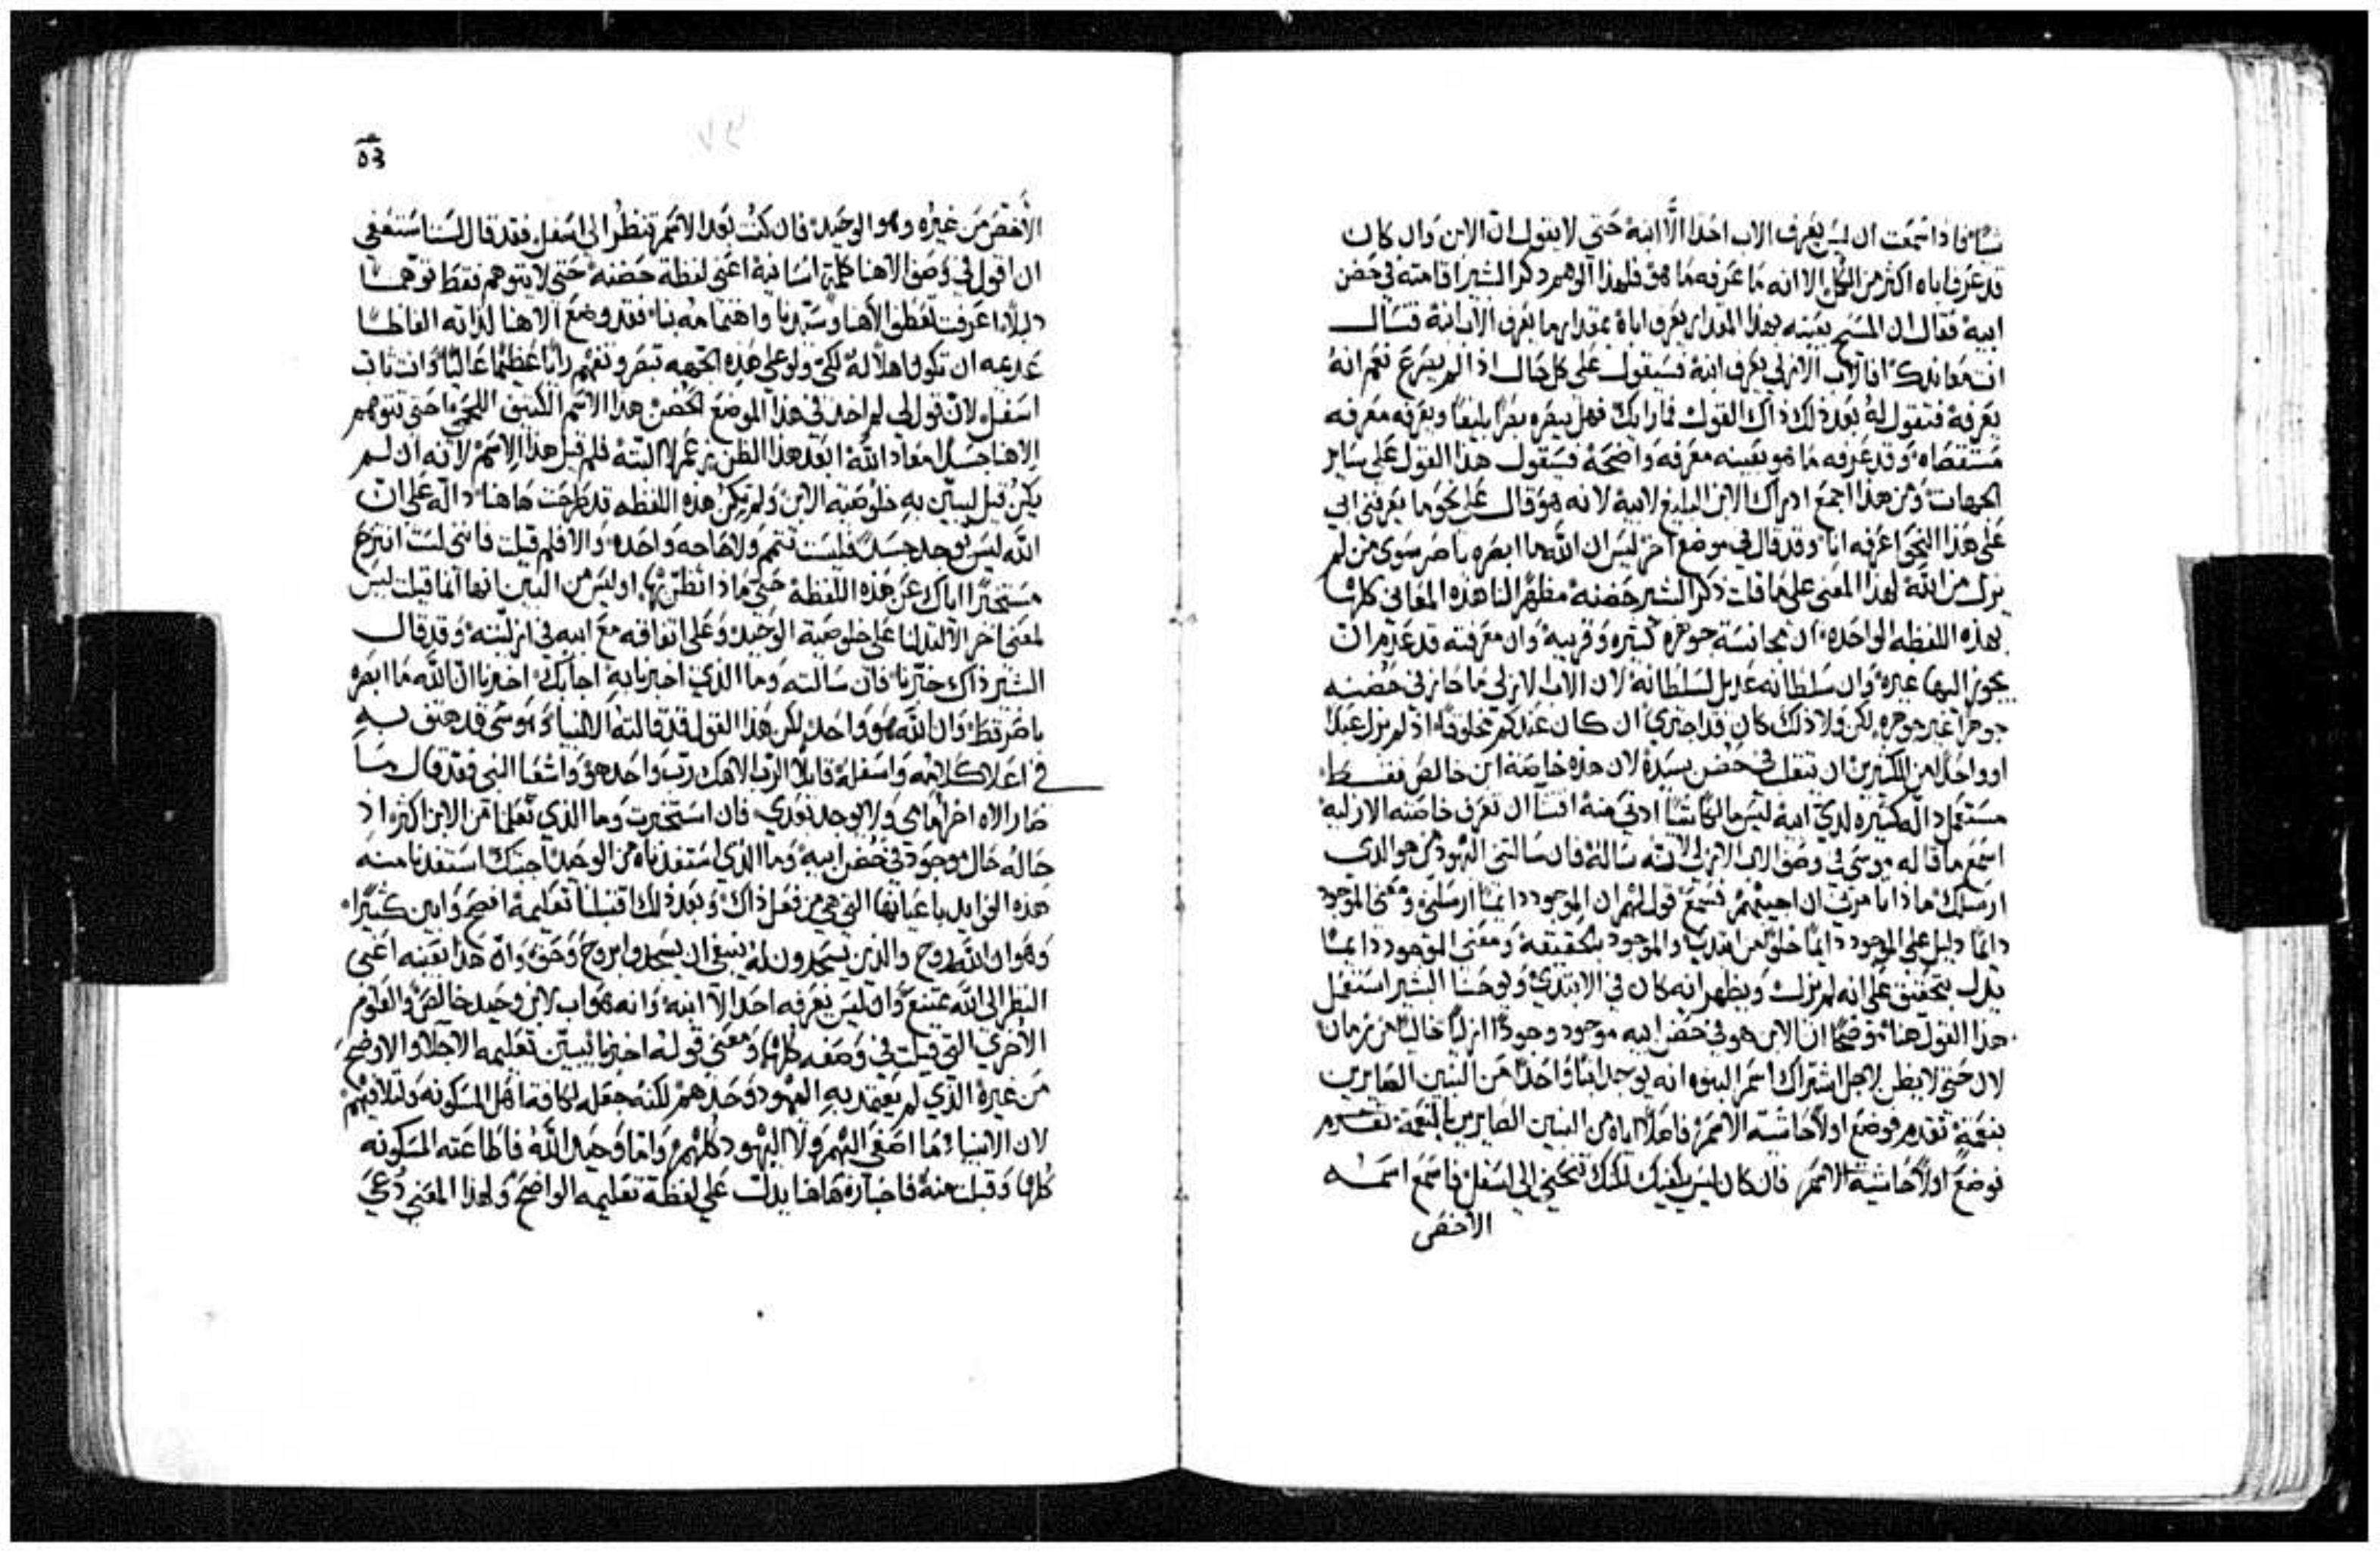 شيا فاذا سمعت ان ليس يعرف الاب احدا الّا ابنه حتي لا يقول ان الابن وان كان
قد عرف اباه اكثر من الكل الا انه ما عرفه ما هو فلهذا الوهم ذكر البشير اقامته في حضن
ابيه فقال ان المسيح بعينه بهذا المقدار يعرف اباه بمقدار ما يعرف الاب ابنه فسال
انت معاندك افالاب الازلي يعرف ابنه فسيقول علي كل حال اذا لم يصرع نعم انه
يعرفه فتقول له بعد ذلك ذاك القول فما رايك فهل يبصره بصرا بليغا ويعرفه معرفه
مستقصاه وقد عرفه ما هو بعينه معرفه واضحة فسيقول هذا القول علي ساير
الجهات ومن هذا اجمع ادراك الابن البليغ لابيه لانه هو قال علي نحو ما يعرفني ابي
علي هذا النحو اعرفه انا وقد قال في موضع اخر ليس ان الله ما ابصره باصر سوي من لم
يزل من الله لهذا المعني علي ما قلت ذكر البشير حضنه مظهرا لنا هذه المعاني كلها
بهذه اللفظه الواحده ان مجانسة جوهره كثيره وقريبه وان معرفته قد عدم ان
يجوز اليها غيره وان سلطانه عديل لسلطانه لان الاب الازلي ما حاز في حضنه
جوهرا غير جوهره لكن ولا ذلك كان قد اجتري ان كان عندكم مخلوقا اذ لم يزل عبدا
او واحدا من الكثيرين ان تنقلب في حضن سيده لان هذه خاصة ابن خالص فقط
مستعمل دالّه كثيره لدي ابيه ليس مالكا شيا ادني منه افتسال ان تعرف خاصته الازليه
اسمع ما قاله موسي في وصف الاب الازلي لانه ساله فان سالتني اليهود من هو الذي
ارسلك ماذا تامرني ان اجيبهم فسمع قول لهم ان الموجود دايما ارسلني ومعني الموجود
دايما دليل علي الموجود دايما خلوا من ابتدي والموجود بالحقيقه ومعني الموجود دايما
يدل بتحقيق علي انه لم يزل ويظهر انه كان في الابتدي ويوحنا البشير استعمل
هذا القول هنا موضحا ان الابن هو في حضن ابيه موجود وجودا ازليا خاليا من زمان
لان حتي لا يظن لاجل اشتراك اسم البنوه انه يوجد ابنا واحدا من البنين الصايرين
بنعمة تقدم فوضع اولا حاشية الاسم فاصلا اياه من البنين الصايرين بالنعمة تقدم
فوضع اولا حاشية الاسم فان كان ليس يكفيك لكنك تنحني الي اسفل فاسمع اسمه
الاخص
٥٣
الاخصّ من غيره وهو الوحيد فان كنت بعد الاسم تنظر الي اسفل فقد قال لست استعفي
ان اقول في وصف الاهنا كلمة انسانية اعني لفظة حضنه حتي لا تتوهم فقط توهما
دليلا اعرفت تعطف الاهنا وسيدنا واهتمامه بنا فقد وضع الاهنا لذاته الفاظا
عديمه ان تكون اهلا له لكي ولو علي هذه الجهه تبصر وتفهم رايا عظيما عاليا وانت ثابت
اسفل لان قول لي لم اخذ في هذا الموضع الحضن هذا الاسم الكثيف اللحمي احتي تتوهم
الاهنا جسدا معاذ الله ابعد هذا الظن يزعم لا البتة فلم قيل هذا الاسم لانه ان لم
يكن قيل ليبين به خلوصية الابن ولم تكن هذه اللفظه قد طرحت هاهنا دالّه علي ان
الله ليس يوجد جسدا فليست تتمم ولا حاجه واحده والا فلم قيلت فانني لست انتزح
مستخبرا اياك عن هذه اللفظه حتي ماذا تظن بها اوليس من البين انها انما قيلت ليس
لمعني اخر الا لتدلنا علي خلوصية الوحيد وعلي اتفاقه مع ابيه في ازليته وقد قال
البشير ذاك خبّرنا فان سالته وما الذي اخبرنا به اجابك اخبرنا ان الله ما ابصره
باصر قط وان الله هو واحد لكن هذا القول قد قالته الانبيا وموسي قد هتف به
في اعلا كلامه واسفله قايلا الرب الاهك رب واحد هو واشعيا النبي فقد قال ما
صار الاه اخر امامي ولا يوجد بعدي فان استخبرت وما الذي تعلمنا من الابن اكثر اذ
حاله حال موجود في حضن ابيه وما الذي استفدناه من الوحيد اجبتك استفدنا منه
هذه الفوايد باعيانها التي هي من فعل ذاك وبعد ذلك اقتبلنا تعليمه افصح وابين كثيرا
وهو ان الله روح والذين يسجدون له ينبغي ان يسجدوا بروح وحق وان هذا بعينه اعني
النظر الي الله يمتنع وان ليس يعرفه احدا الا ابنه وانه هو اب لابن وحيد خالص والعلوم
الاخري التي قيلت في وصفه كلها ومعني قوله اخبرنا يبين تعليمه الاجلا والاوضح
من غيره الذي لم يعتمد به اليهود وحدهم لكنه جعله لكافة اهل المسكونه ولتلافيهم
لان الانبياء ما اصغي اليهم ولا اليهود كلهم واما وحيد الله فاطاعته المسكونه
كلها وقبلت منه فاخباره هاهنا يدل علي لفظة تعليمه الواضح ولهذا المعني دعي